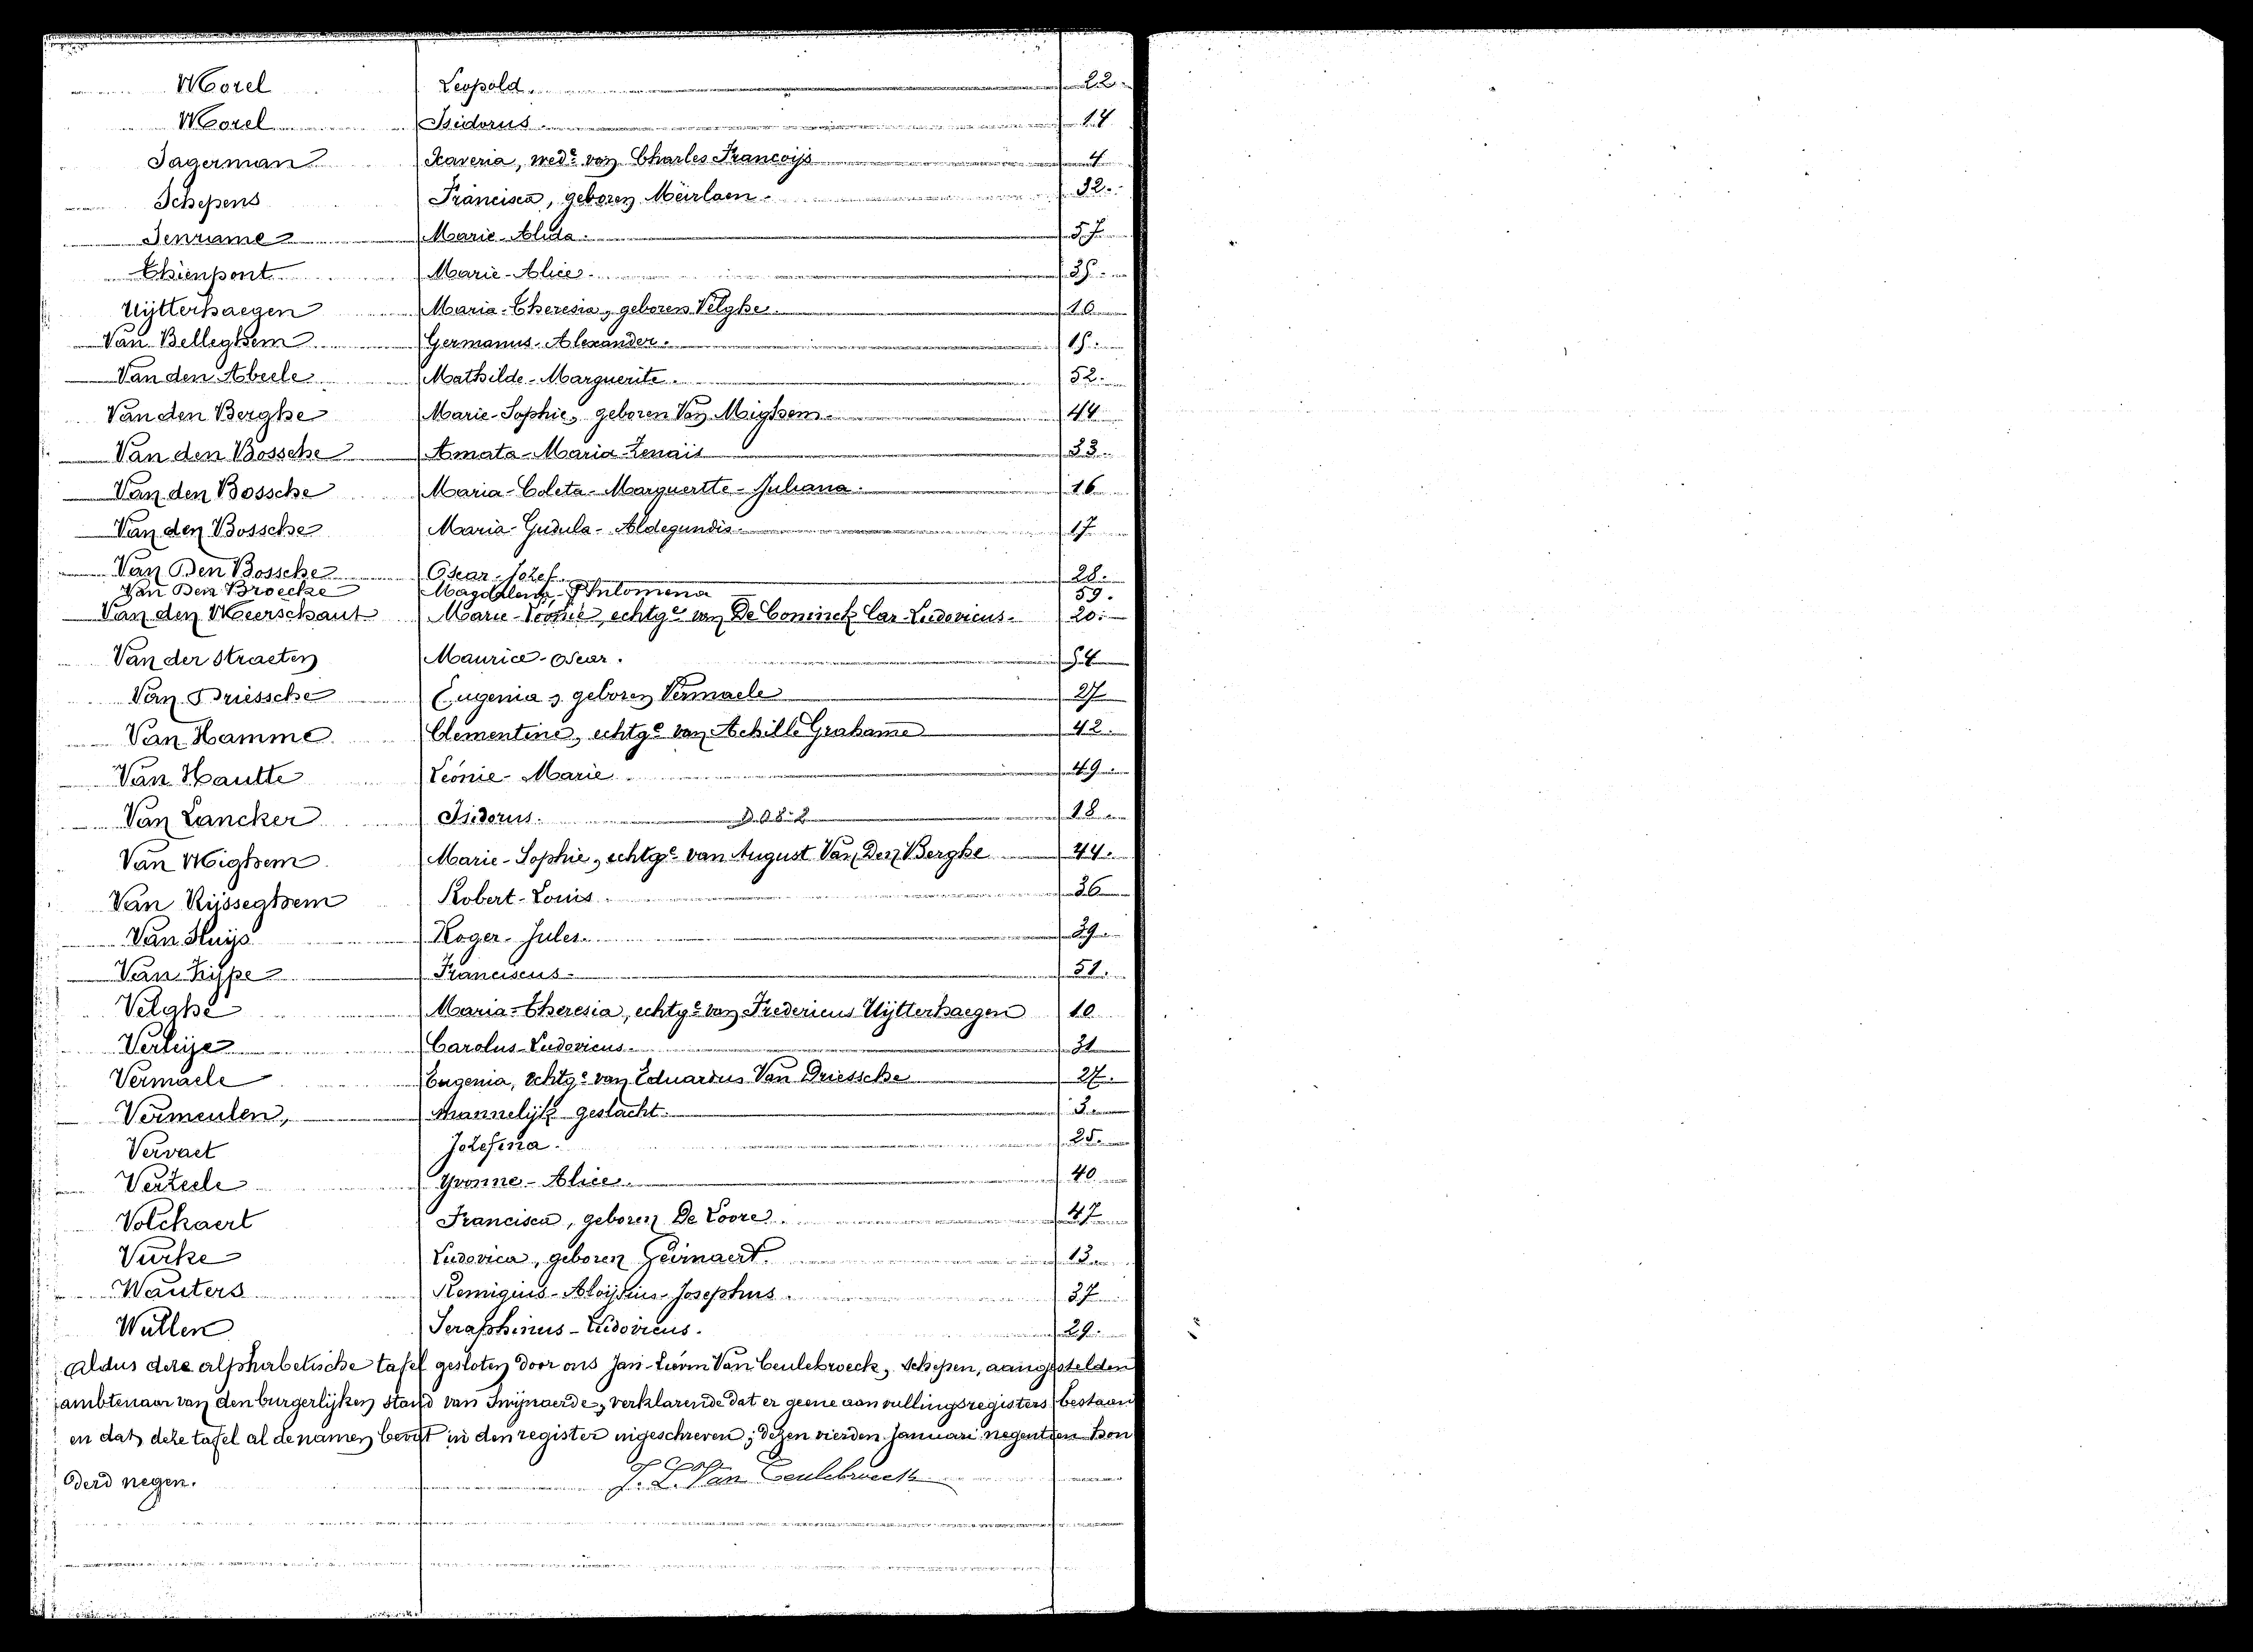 Morel Leopold. 22.
Morel Isidorus. 14
Pagerman Xaveria, wede van Charles Francoijs 4
Schepens Francisca, geboren Meirlaen. 32.
Tenrame Marie-Alida. 57
Thienpont Marie-Alice. 35.
Uijtterhaegen Maria-Theresia, geboren Velghe. 10
Van Belleghem Germanus-Alexander. 15.
Van den Abeele Mathilde-Marguerite. 52.
Van den Berghe Marie-Sophie, geboren Van Mighem. 44
Van den Bossche Amata-Maria-Zenaïs 33.
Van den Bossche Maria-Coleta-Marguertte-Juliana. 16
Van den Bossche Maria-Gudula-Aldegundis. 17
Van Den Bossche Oscar-Jozef. 28.
Van Den Broecke Magdalena-Philomena 59.
Van den Meerschaut Marie-Leonie, echtge van De Coninck Car-Ludovicus. 20.
Van der Straeten Maurice-Oscar. 54
Van Driessche Eugenia, geboren Vermaele 27
Van Hamme Clementine, echtge van Achille Grahame 42.
Van Hautte Leonie-Marie. 49
Van Lancker Isidorus. 18
Van Mighem Marie-Sophie, echtge van August Van Den Berghe 44.
Van Rijsseghem Robert-Louis. 36
Van Sluijs Roger-Jules. 39
Van Zijpe Franciscus. 51.
Velghe Maria-Theresia, echtge van Fredericus Uijtterhaegen 10
Verleije Carolus-Ludovicus. 31
Vermaele Eugenia, echtge van Eduardus Van Driessche 27.
Vermeulen, Mannelijk geslacht. 3
Vervaet Jozefina. 25.
Verzeele Yvonne-Alice. 40
Volckaert Francisca, geboren De Loore. 47
Vurke Ludovica, geboren Geirnaert. 13
Wauters Remigius-Aloijsius-Josephus. 37
Wullen Seraphinus-Ludovicus. 29.
Aldus deze alphabetische tafel gesloten door ons Jan-Livin Van Ceulebroeck, Schepen, aangestelden
ambtenaar van den burgerlijken stand van Swijnaerde, verklarende dat er geene aanvullingsregisters bestaan
en dat deze tafel al de namen bevat in den register ingeschreven; dezen vierden Januari negentien hon
derd negen.
J. L. Van Ceulebroeck